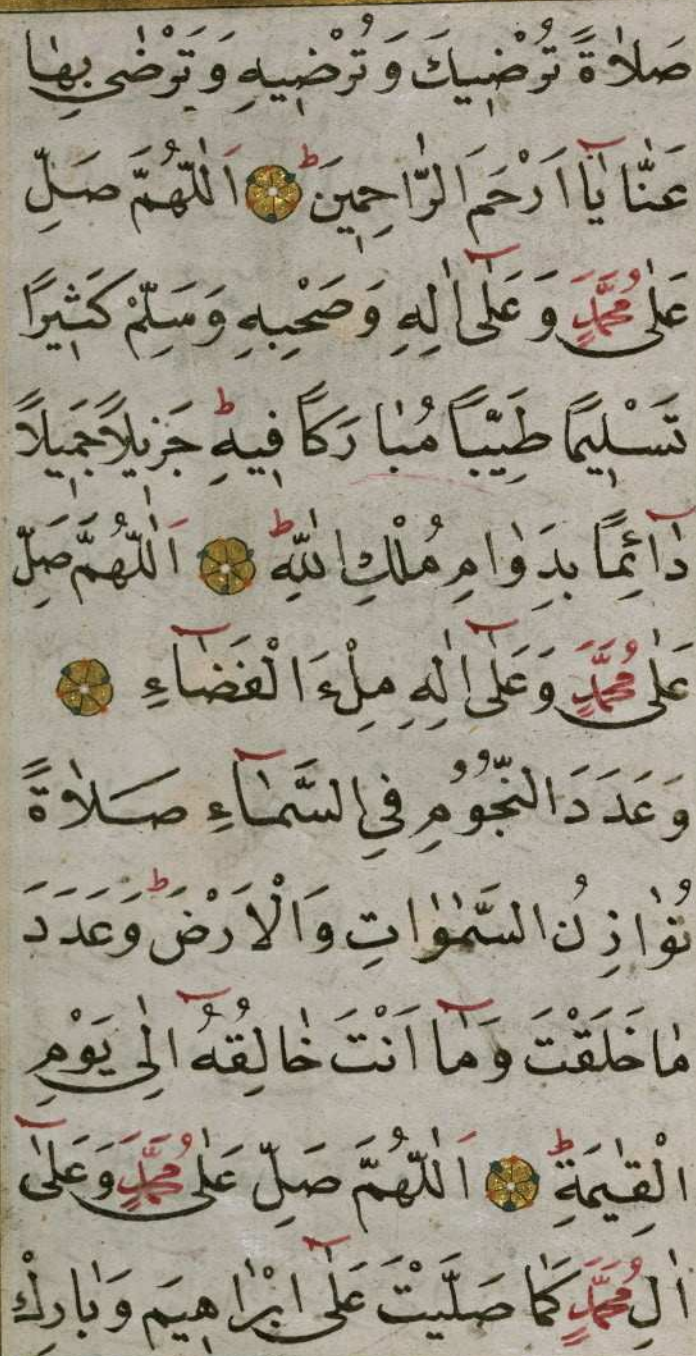 صَلٰاةً تُرْضٖيكَ وَتُرْضٖيهِ وَتَرْضٰى بِهٰا
عَنّٰا يٰٓا اَرْحَمَ الرّٰاحِمٖينَ ط اَللّٰهُمَّ صَلِّ
عَلٰى مُحَمَّدٍ وَعَلٰٓى اٰلِهٖ وَصَحْبِهٖ وَسَلِّمْ كَثٖيرًا
تَسْلٖيمًا طَيِّبًا مُبٰارَكًا فٖيهِ ط جَزٖيلًا جَمٖيلًا
دٰٓائِمًا بِدَوٰامِ مُلْكِ اللّٰهِ ط اَللّٰهُمَّ صَلِّ
عَلٰى مُحَمَّدٍ وَعَلٰٓى اٰلِهٖ مِلْءَ الْفَضٰٓاءِ
وَعَدَدَ النُّجُومِ فِي السَّمٰٓاءِ صَلٰاةً
تُوٰازِنُ السَّمٰوٰاتِ وَالْاَرْضَ ط وَعَدَدَ
مٰا خَلَقْتَ وَمٰٓا اَنْتَ خٰالِقُهُٓ اِلٰى يَوْمِ
الْقِيٰمَةِ ط اَللّٰهُمَّ صَلِّ عَلٰى مُحَمَّدٍ وَعَلٰٓى
اٰلِ مُحَمَّدٍ كَمٰا صَلَّيْتَ عَلٰٓى اِبْرٰاهٖيمَ وَبٰارِكْ